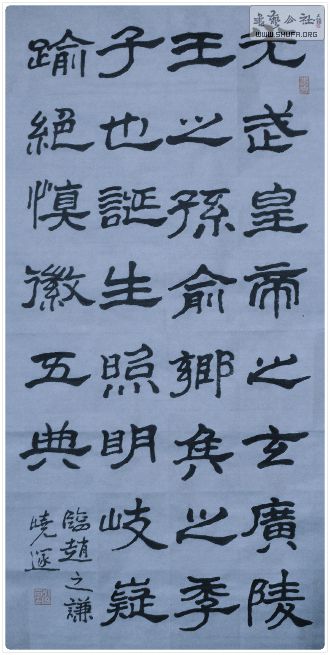 光武皇帝之玄廣陵
王之孫俞鄉侯之季
子也誕生照明岐嶷
踰絕慎徽五典
臨趙之謙
書藝公社
WWW.SHUFA.ORG